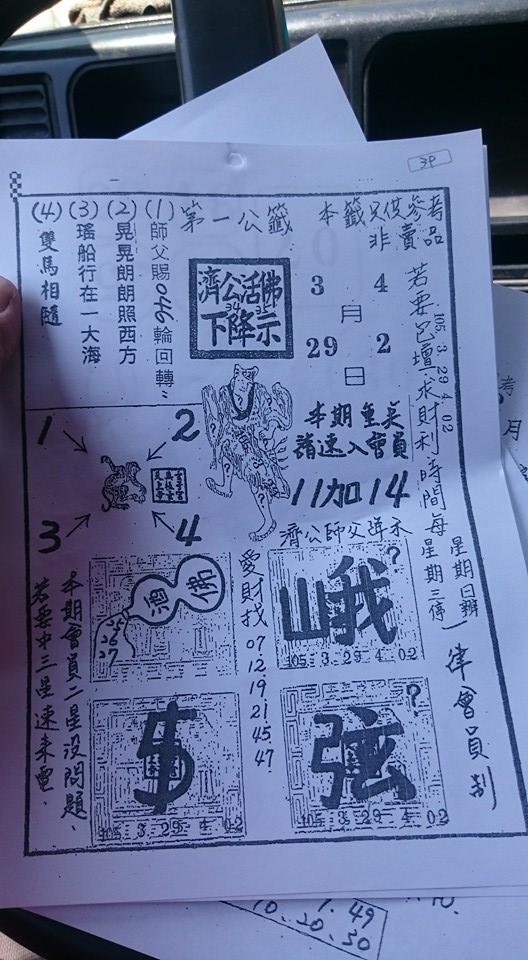 3P
本籤只供參考
非賣品
第一公籤
(1)師父賜“046輪回轉”
(2)晃晃朗朗照西方
(3)瑤船行在一大海
(4)雙馬相隨
濟公活佛
34 35
下降示
3 月 29 日
4 2
105 3 29 4 02
若要巴壇求財利時間每星期日辦
星期三停
一律會員制
本期重英
請速入會員
11加14
濟公師父降示
1
2
3
4
愛財找
07
12
19
21
45
47
濟佛
25
26
27
峨
?
105 3 29 4 02
5
105 3 29 4 02
弦
?
105 3 29 4 02
本期會員二星沒問題、
若要中三星速來電、
月
1. 49
10. 20. 30